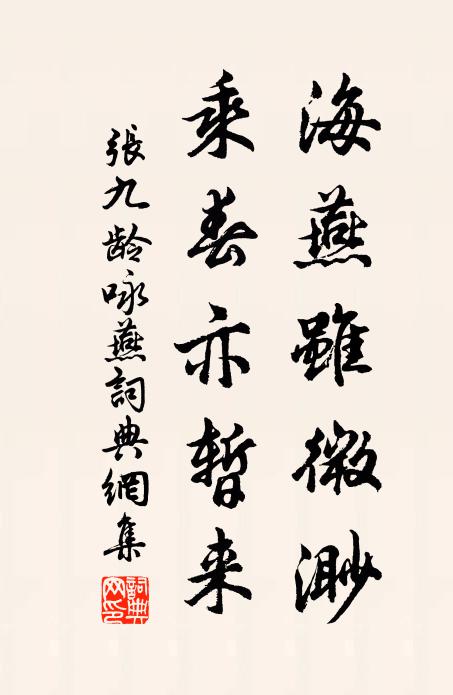 海燕雖微渺
乘春亦暫来
張九龄咏燕詞典網集
詞典网印